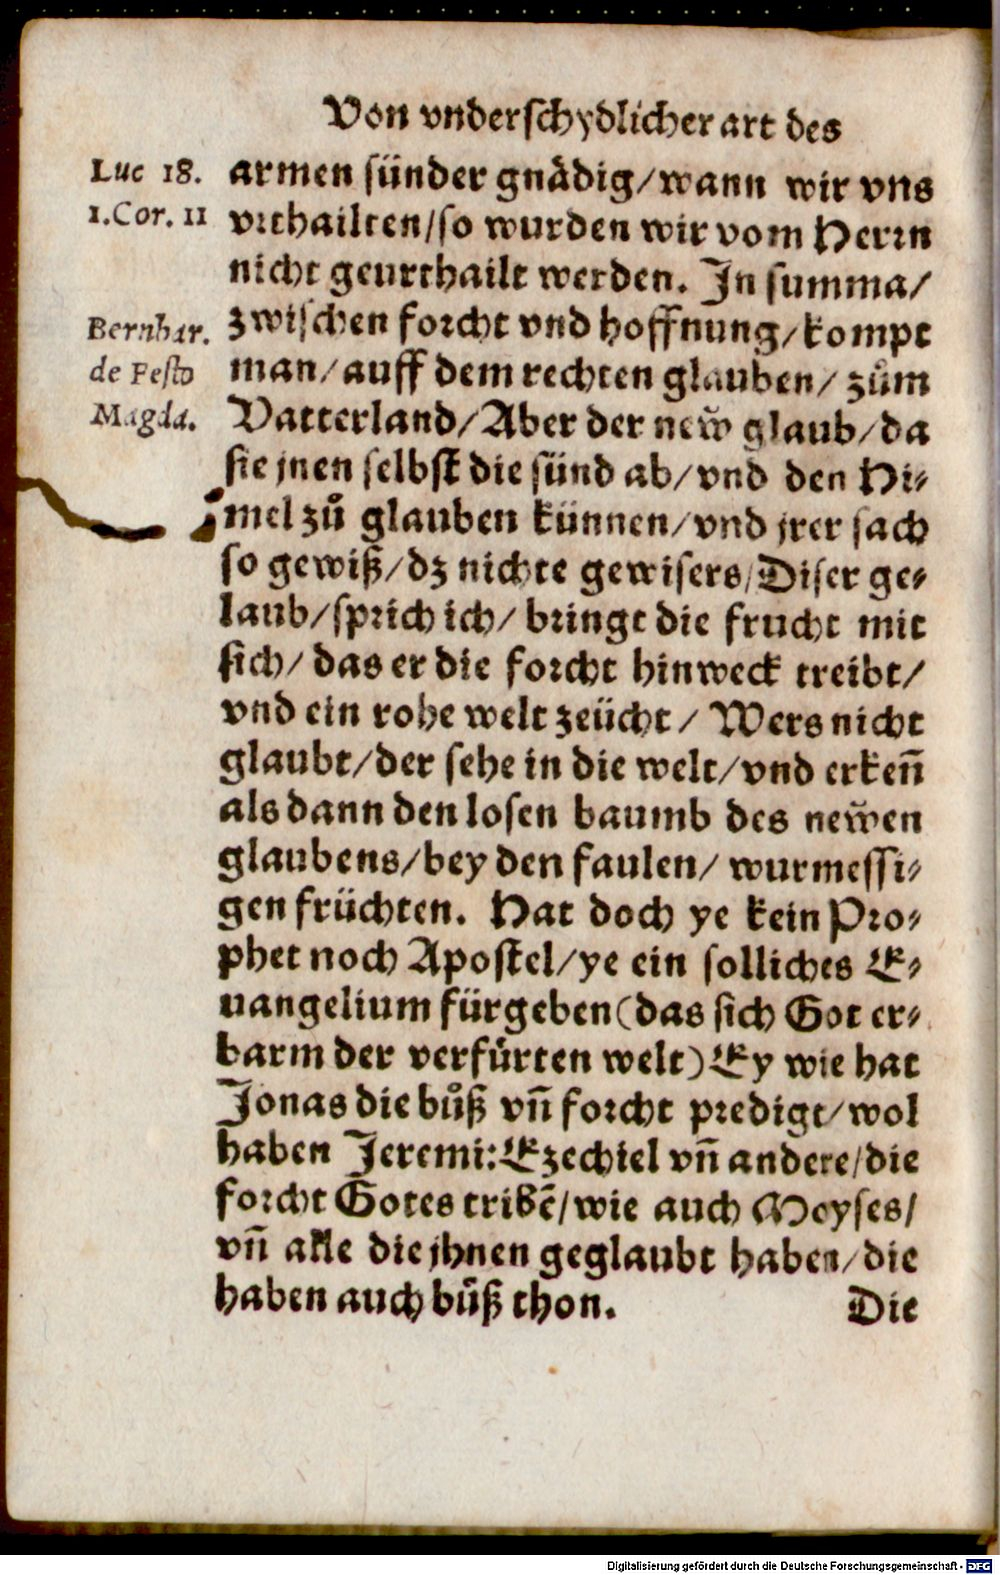 Von vnderschydlicher art des
Luc 18.
1.Cor. 11
Bernhar.
de Festo
Magda.
armen sünder gnädig/wann wir vns
vrthailten/so wurden wir vom Herrn
nicht geurthailt werden. In summa/
zwischen forcht vnd hoffnung/kompt
man/auff dem rechten glauben/ zům
Vatterland/Aber der new̃ glaub/da
sie jnen selbst die sünd ab/vnd den Hi-
mel zů glauben künnen/vnd jrer sach
so gewiß/dz nichte gewisers/Diser ge-
laub/sprich ich/ bringt die frucht mit
sich/ das er die forcht hinweck treibt/
vnd ein rohe welt zeücht/ Wers nicht
glaubt/der sehe in die welt/vnd erkeñ
als dann den losen baumb des new̃en
glaubens/bey den faulen/ wurmessi-
gen früchten. Hat doch ye kein Pro-
phet noch Apostel/ye ein solliches E-
uangelium fürgeben(das sich Got er-
barm der verfürten welt)Ey wie hat
Jonas die bůß vñ forcht predigt/wol
haben Jeremi:Ezechiel vñ andere/die
forcht Gotes tribẽ/wie auch Moyses/
vñ alle die jhnen geglaubt haben/die
haben auch bůß thon.
Die
Digitalisierung gefördert durch die Deutsche Forschungsgemeinschaft - DFG